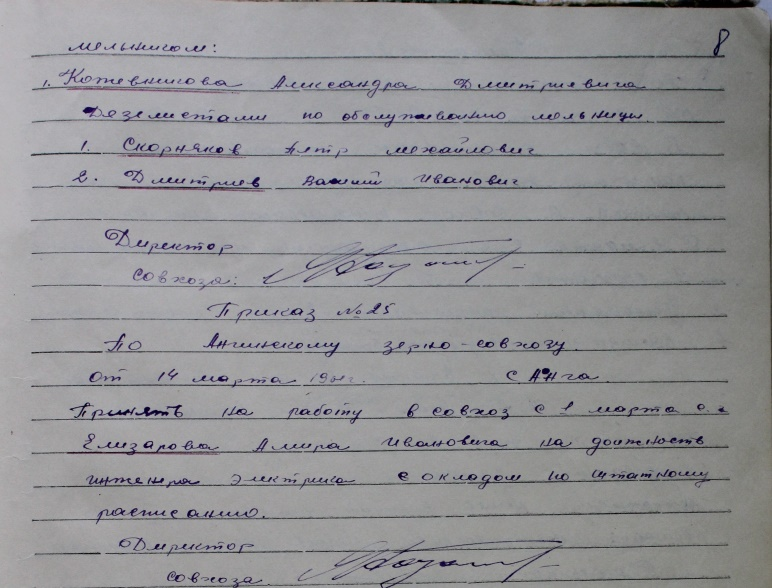 мельником:
8
1. Кожевникова Александра Дмитриевича
Дезелистами по обслуживанию мельницы.
1. Скорняков Петр Михайлович
2. Дмитриев Иванович.
Директор
совхоза:
Приказ №25
По Ангинскому зерно-совхозу.
От 14 марта с Анга.
Принять на работу в совхоз с 1 марта с.г
Елизарова Амира Ивановича на должность
инженера электрика с окладом по штатному
расписанию.
Директор
совхоза